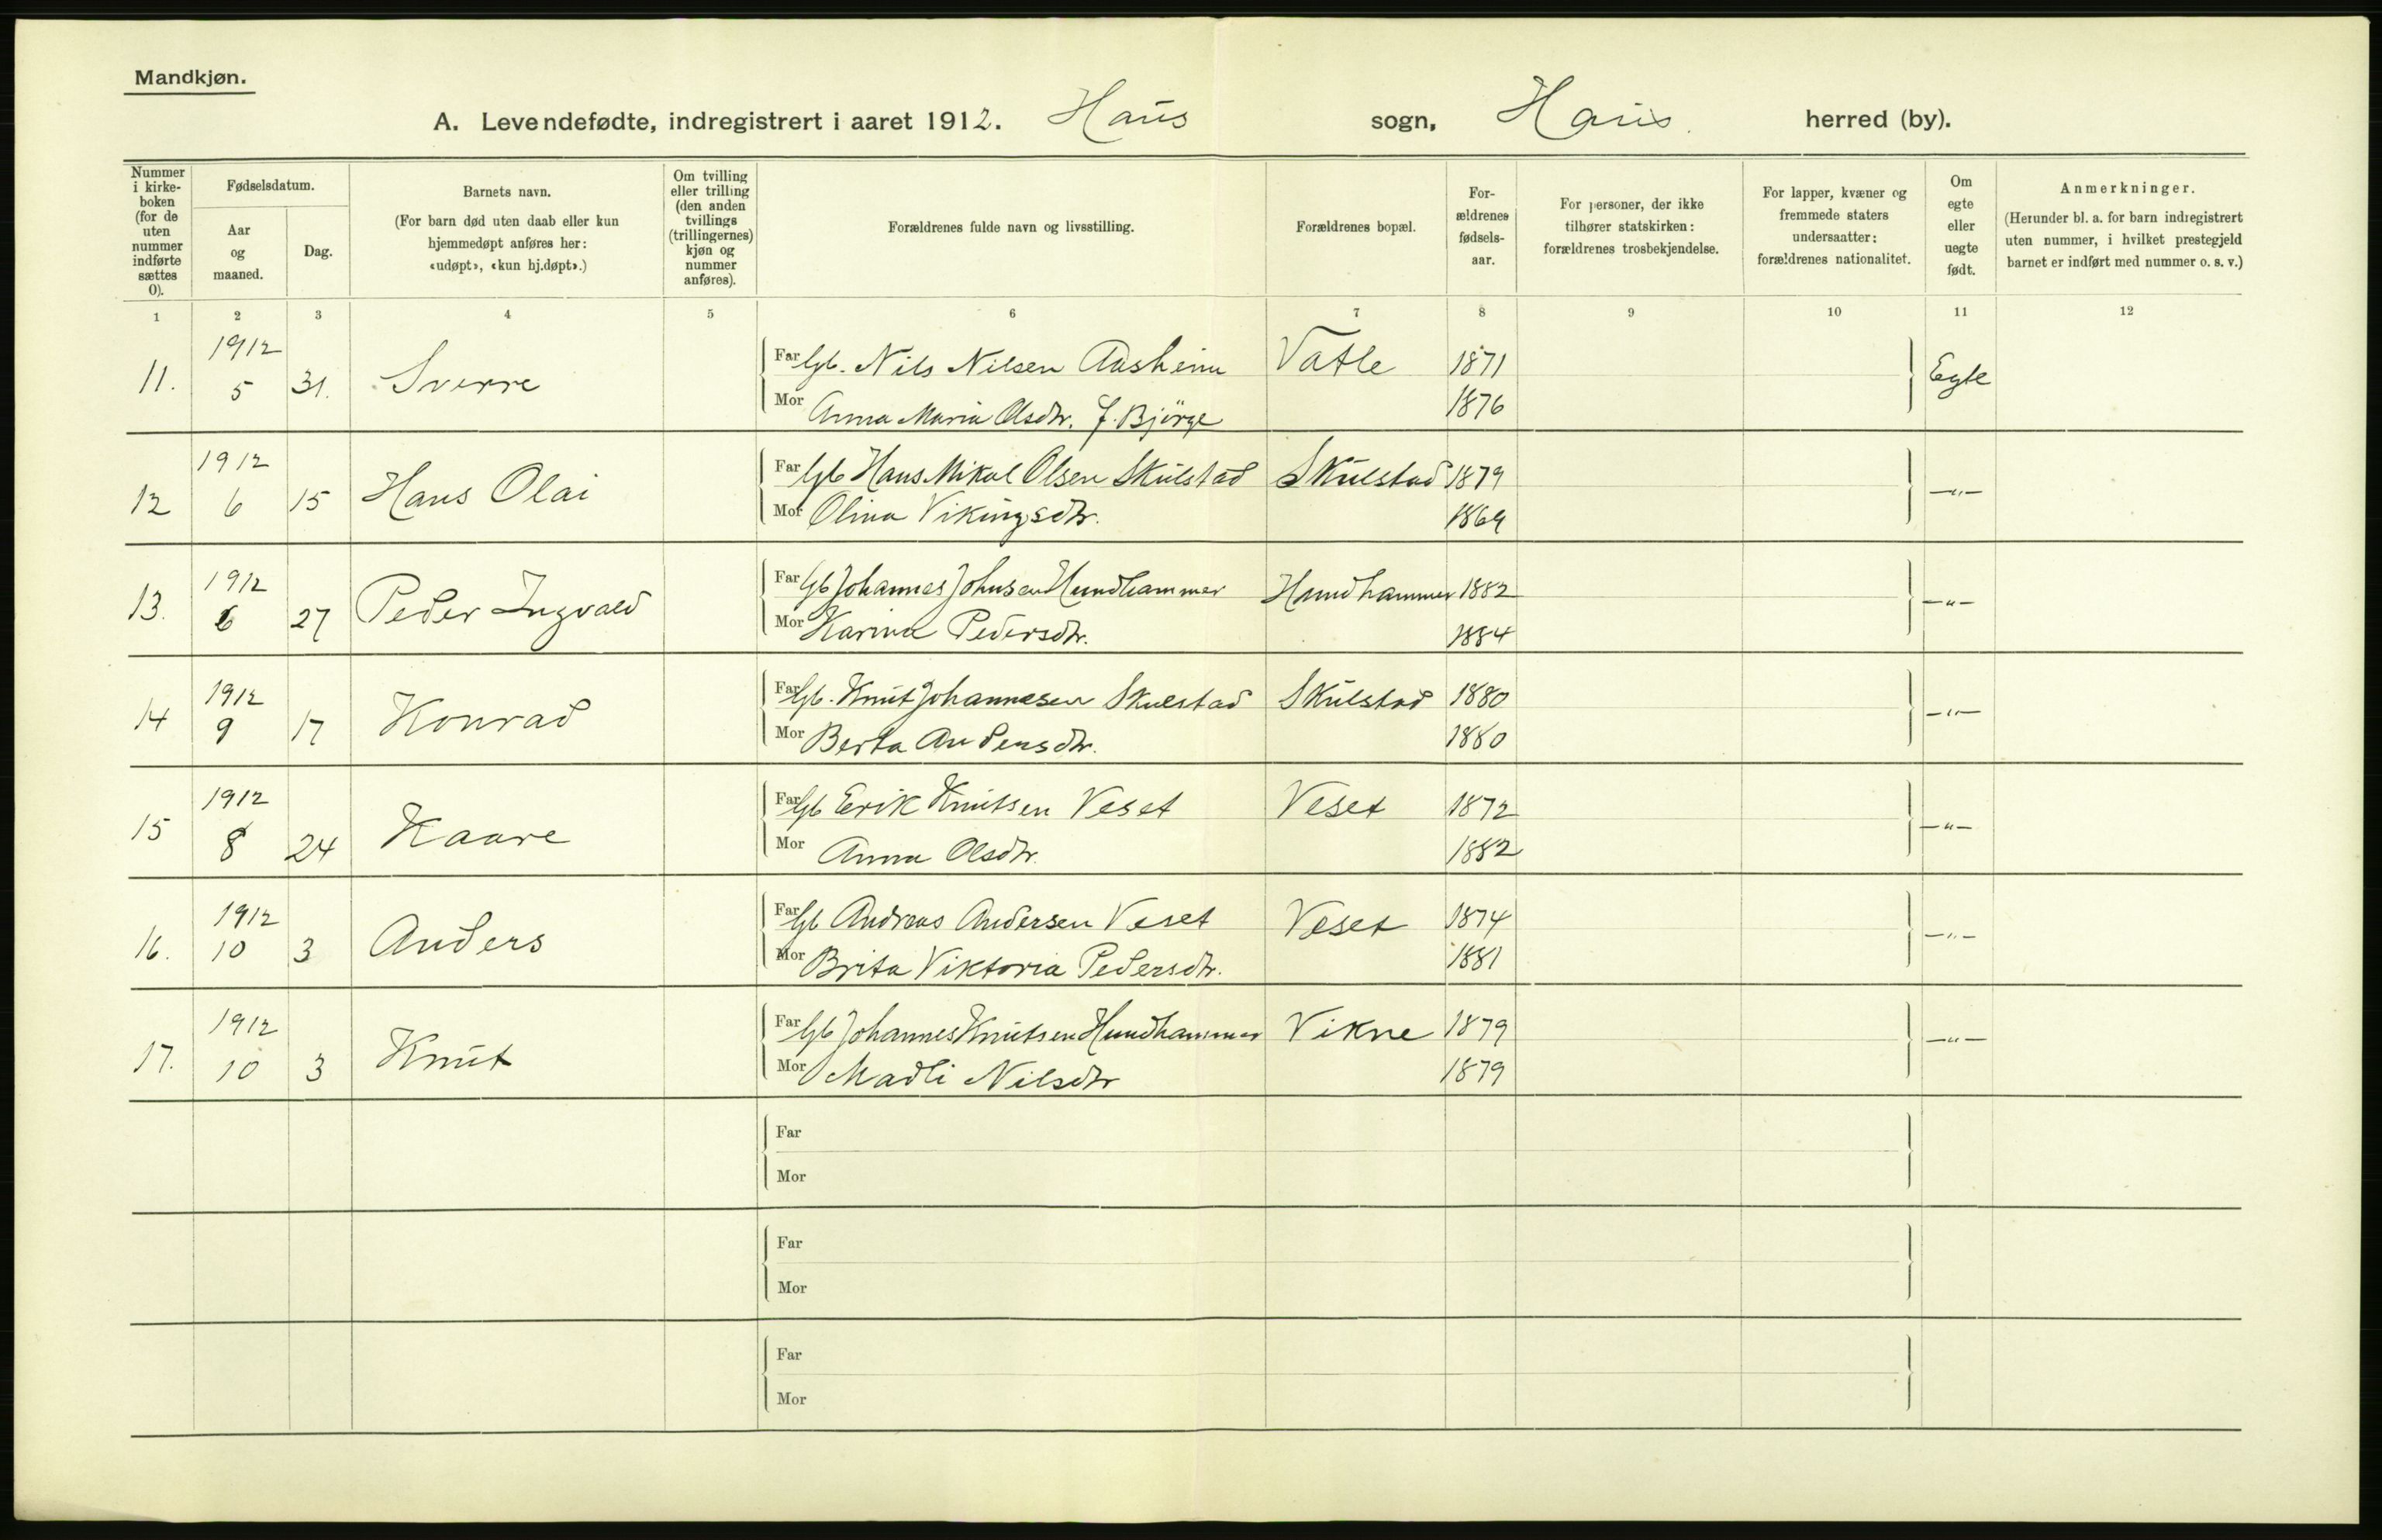 Mandkjøn.
A. Levendefødte, indregistrert i aaret 1912. Haus sogn, Haus herred (by).
Nummer i kirke-boken (for de uten nummer indførte sættes 0).
Fødselsdatum.
Aar og maaned.
Dag.
Barnets navn.
(For barn død uten daab eller kun hjemmedøpt anføres her: «udøpt», «kun hj.døpt».)
Om tvilling eller trilling (den anden tvillings (trillingernes) kjøn og nummer anføres).
Forældrenes fulde navn og livsstilling.
Forældrenes bopæl.
For-ældrenes fødsels-aar.
For personer, der ikke tilhører statskirken: forældrenes trosbekjendelse.
For lapper, kvæner og fremmede staters undersaatter: forældrenes nationalitet.
Om egte eller uegte født.
Anmerkninger.
(Herunder bl. a. for barn indregistrert uten nummer, i hvilket prestegjeld barnet er indført med nummer o. s. v.)
1 2 3 4 5 6 7 8 9 10 11 12
11. 1912 5 31. Sverre Far Gb. Nils Nilsen Aasheim Vatle 1871 Egte
Mor Anna Maria Olsdtr. f. Bjørge 1876
12 1912 6 15 Hans Olai Far Gb Hans Mikal Olsen Skulstad Skulstad 1879 —"—
Mor Olina Vikingsdtr. 1869
13. 1912 6 27 Peder Ingvald Far Gb Johannes Johnsen Hundhammer Hundhammer 1882 —"—
Mor Karina Pedersdtr. 1884
14 1912 9 17 Konrad Far Gb. Knut Johannesen Skulstad Skulstad 1880 —"—
Mor Berta Andersdtr. 1880
15 1912 8 24 Kaare Far Gb Erik Knutsen Veset Veset 1872 —"—
Mor Anna Olsdtr. 1882
16. 1912 10 3 Anders Far Gb Andreas Andersen Veset Veset 1874 —"—
Mor Brita Viktoria Pedersdtr. 1881
17. 1912 10 3 Knut Far Gb Johannes Knutsen Hundhammer Vikne 1879 —"—
Mor Madli Nilsdtr 1879
Far
Mor
Far
Mor
Far
Mor